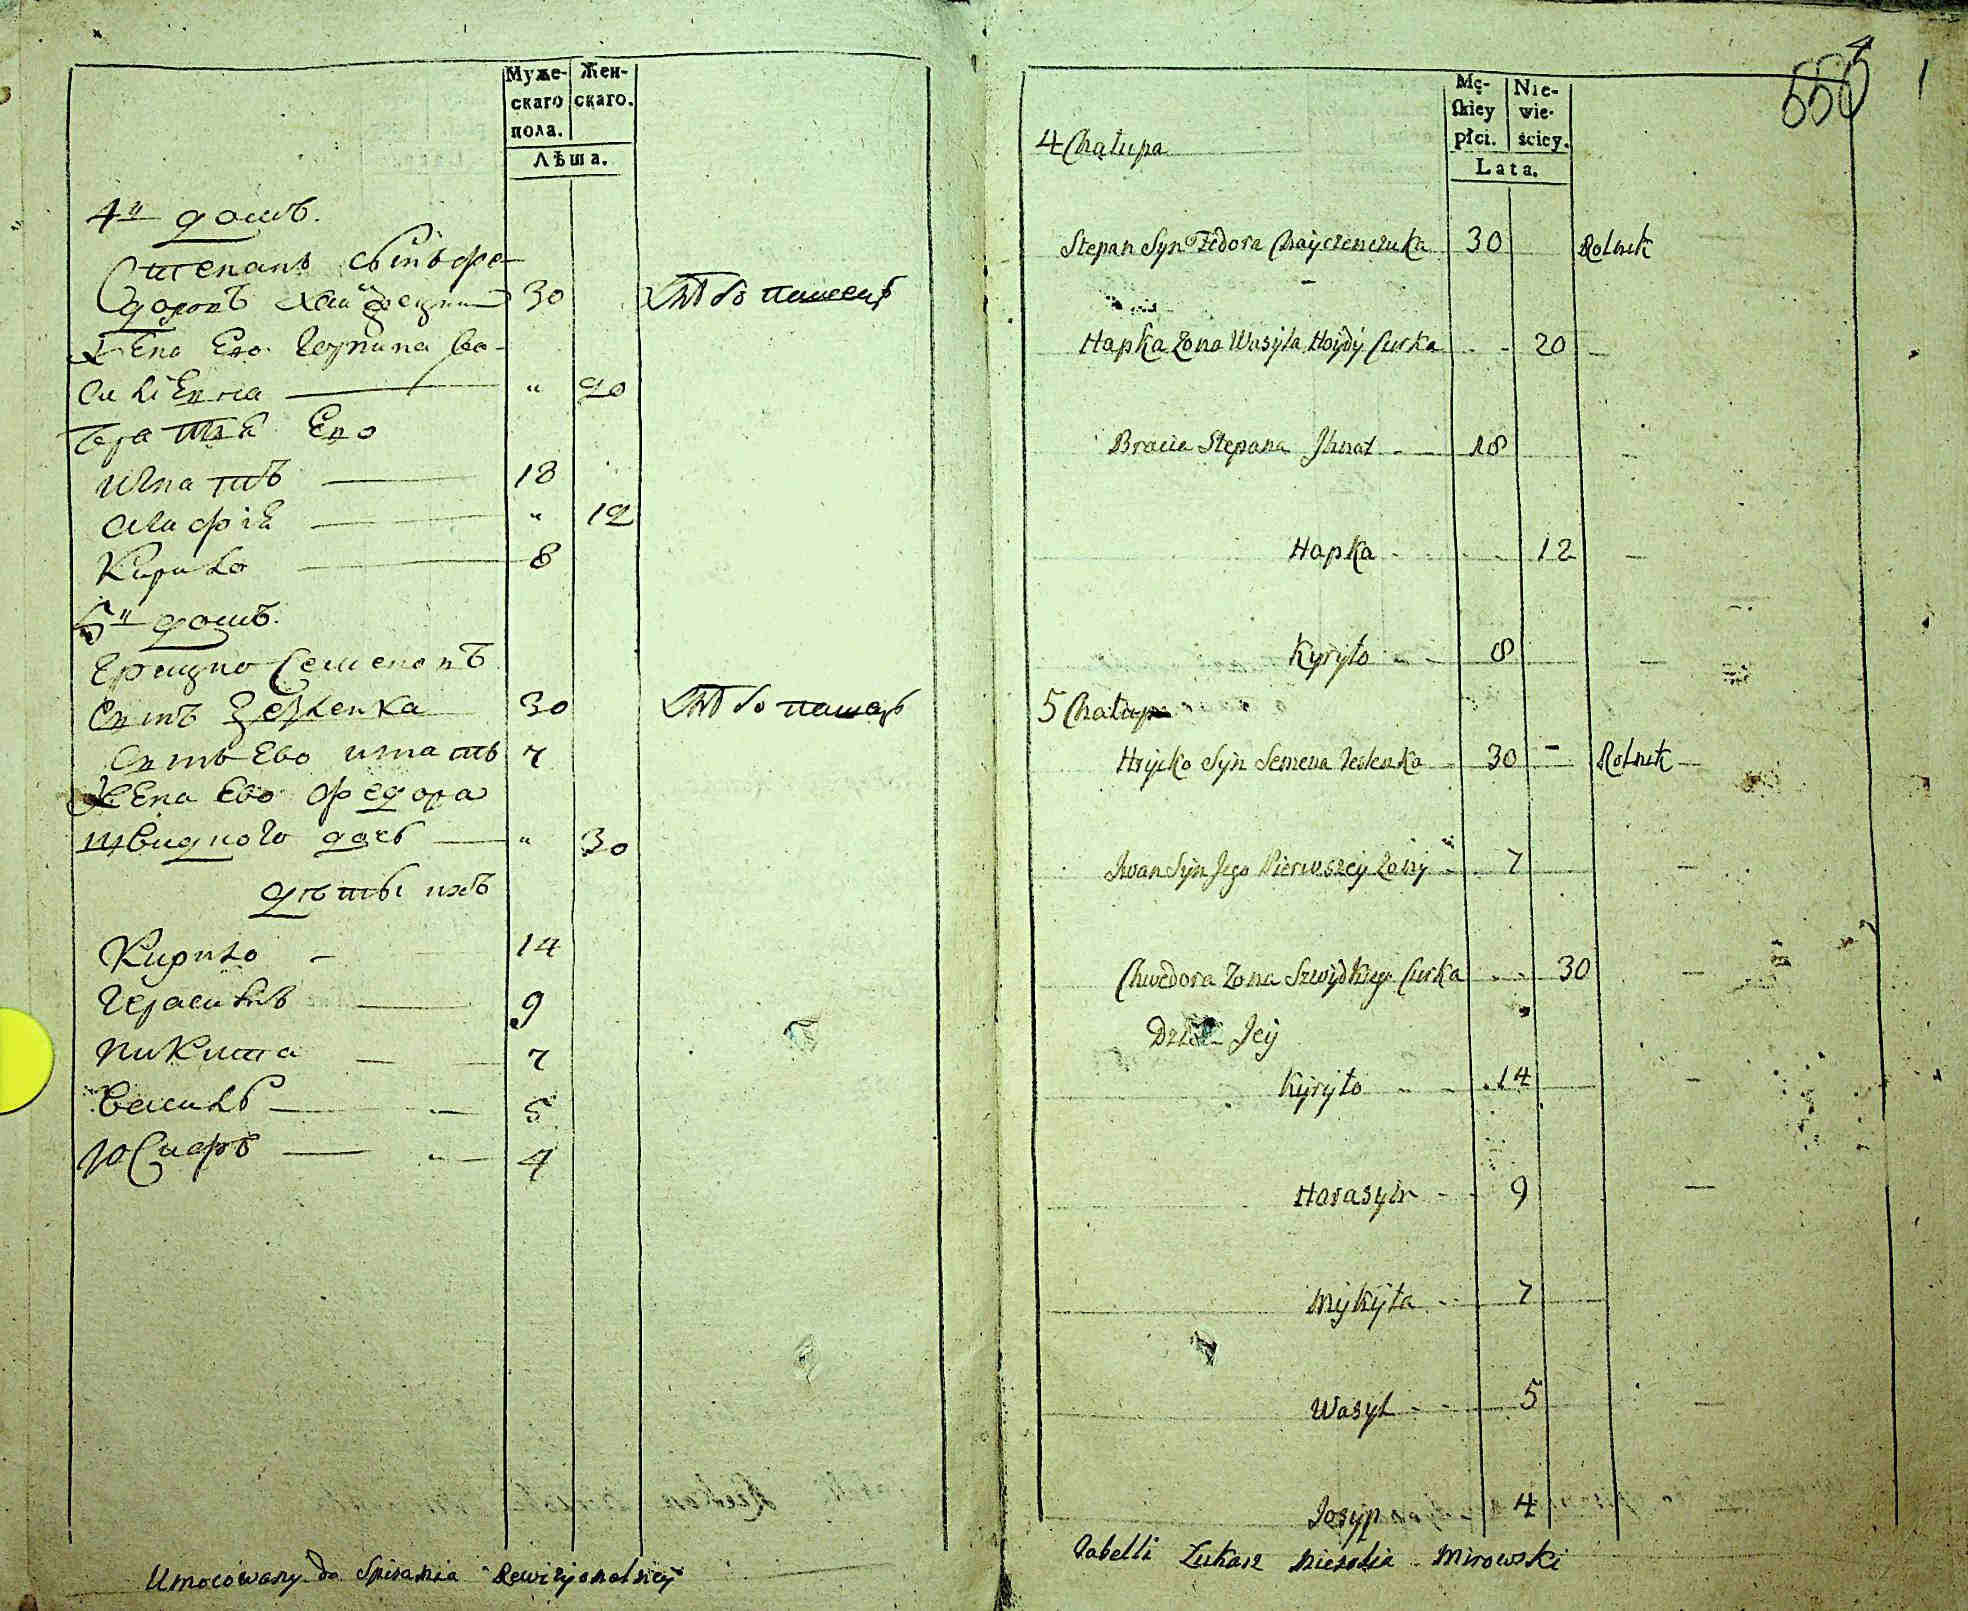 Муже-
скаго
пола.
Жен-
скаго.
Лѣта.
4й домъ.
Степанъ сынъ фе-
доровъ 30
Жена Его
20
Его
Игнатъ 18
12
Кирило 8
5й домъ.
Грицко Семеновъ
Сынъ Зеленка 30
Сынъ Ево 7
Жена Ево Федора
швидкого дочь 30
дѣты ихъ
Кирило 14
Герасимъ 9
Никита 7
Василь 5
Юсифъ 4
Umocowany do Spisania Rewizyonalney
4
555
1
Mę-
skiey
płci.
Nie-
wie-
ściey.
Lata.
4 Chałupa
Stepan Syn Fedora Chayczenczuka 30 Rolnik
Hapka Zona Wasyla Hoydy Curka 20
Bracia Stepana Ihnat 18
Hapka 12
Kyryło 8
5 Chałupa
Hryćko Syn Semena Zelenka 30 Rolnik
Iwan Syn Jego Pierwszey Zony 7
Chwedora Zona Szwydkiego Curka 30
Dzieci Jey
Kyryło 14
Harasym 9
Mykyta 7
Wasyl 5
Josyp 4
Tabelli Łukasz Mirowski